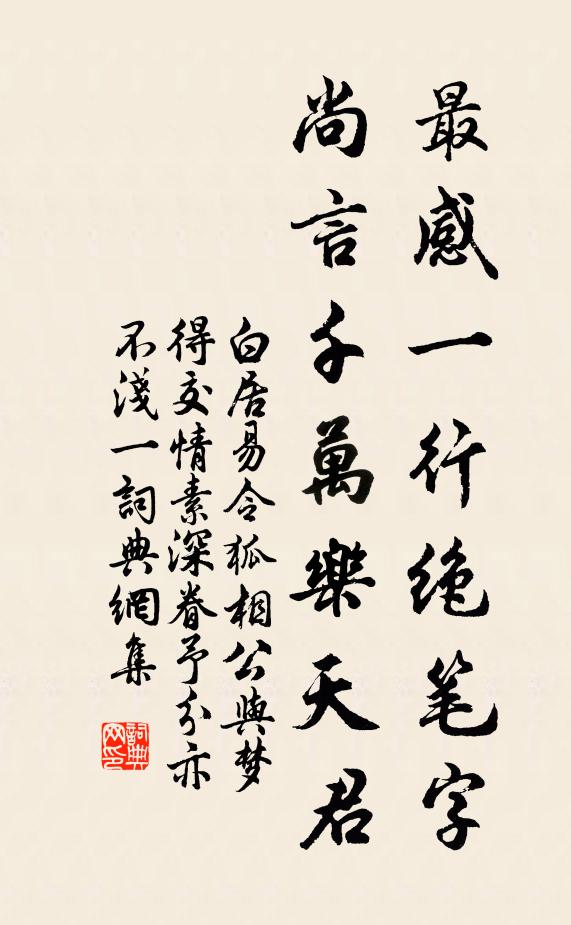 最感一行绝笔字
尚言千萬樂天君
白居易令狐相公與梦
得交情素深眷予分亦
不淺一詞典網集
詞典网印